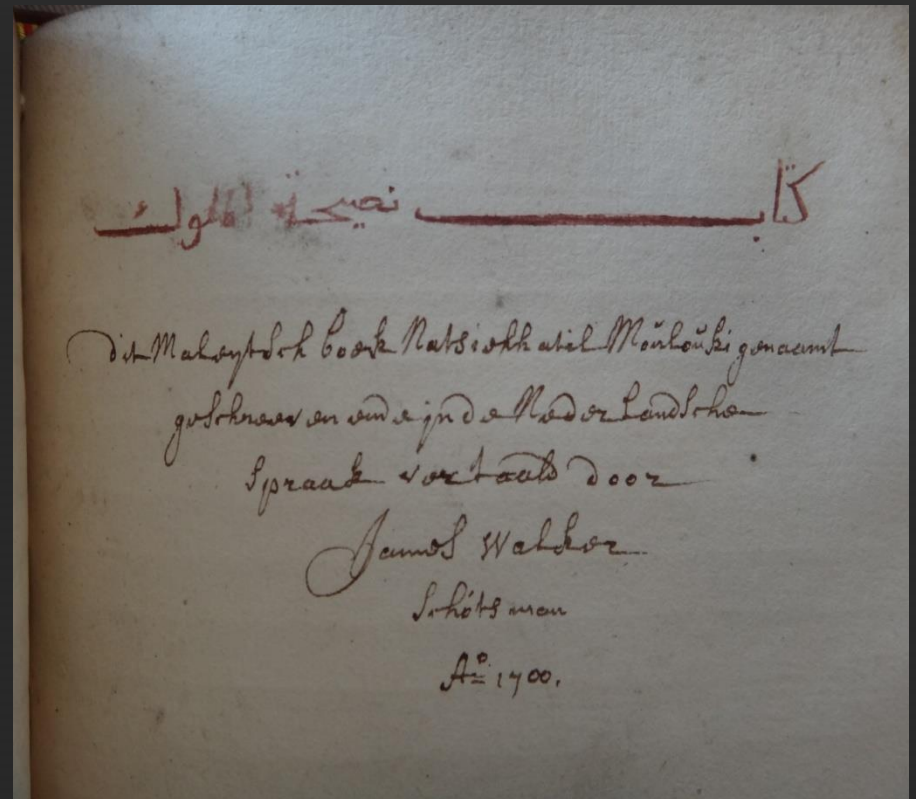 كتاب نصيحة الملوك
dit Maleytsch boek Natsiehhatil Moŭloŭki genaamt
geschreeven ende jn de Nederlandsche
spraak vertaald door
James Walker
Schótsman
Aº 1700.